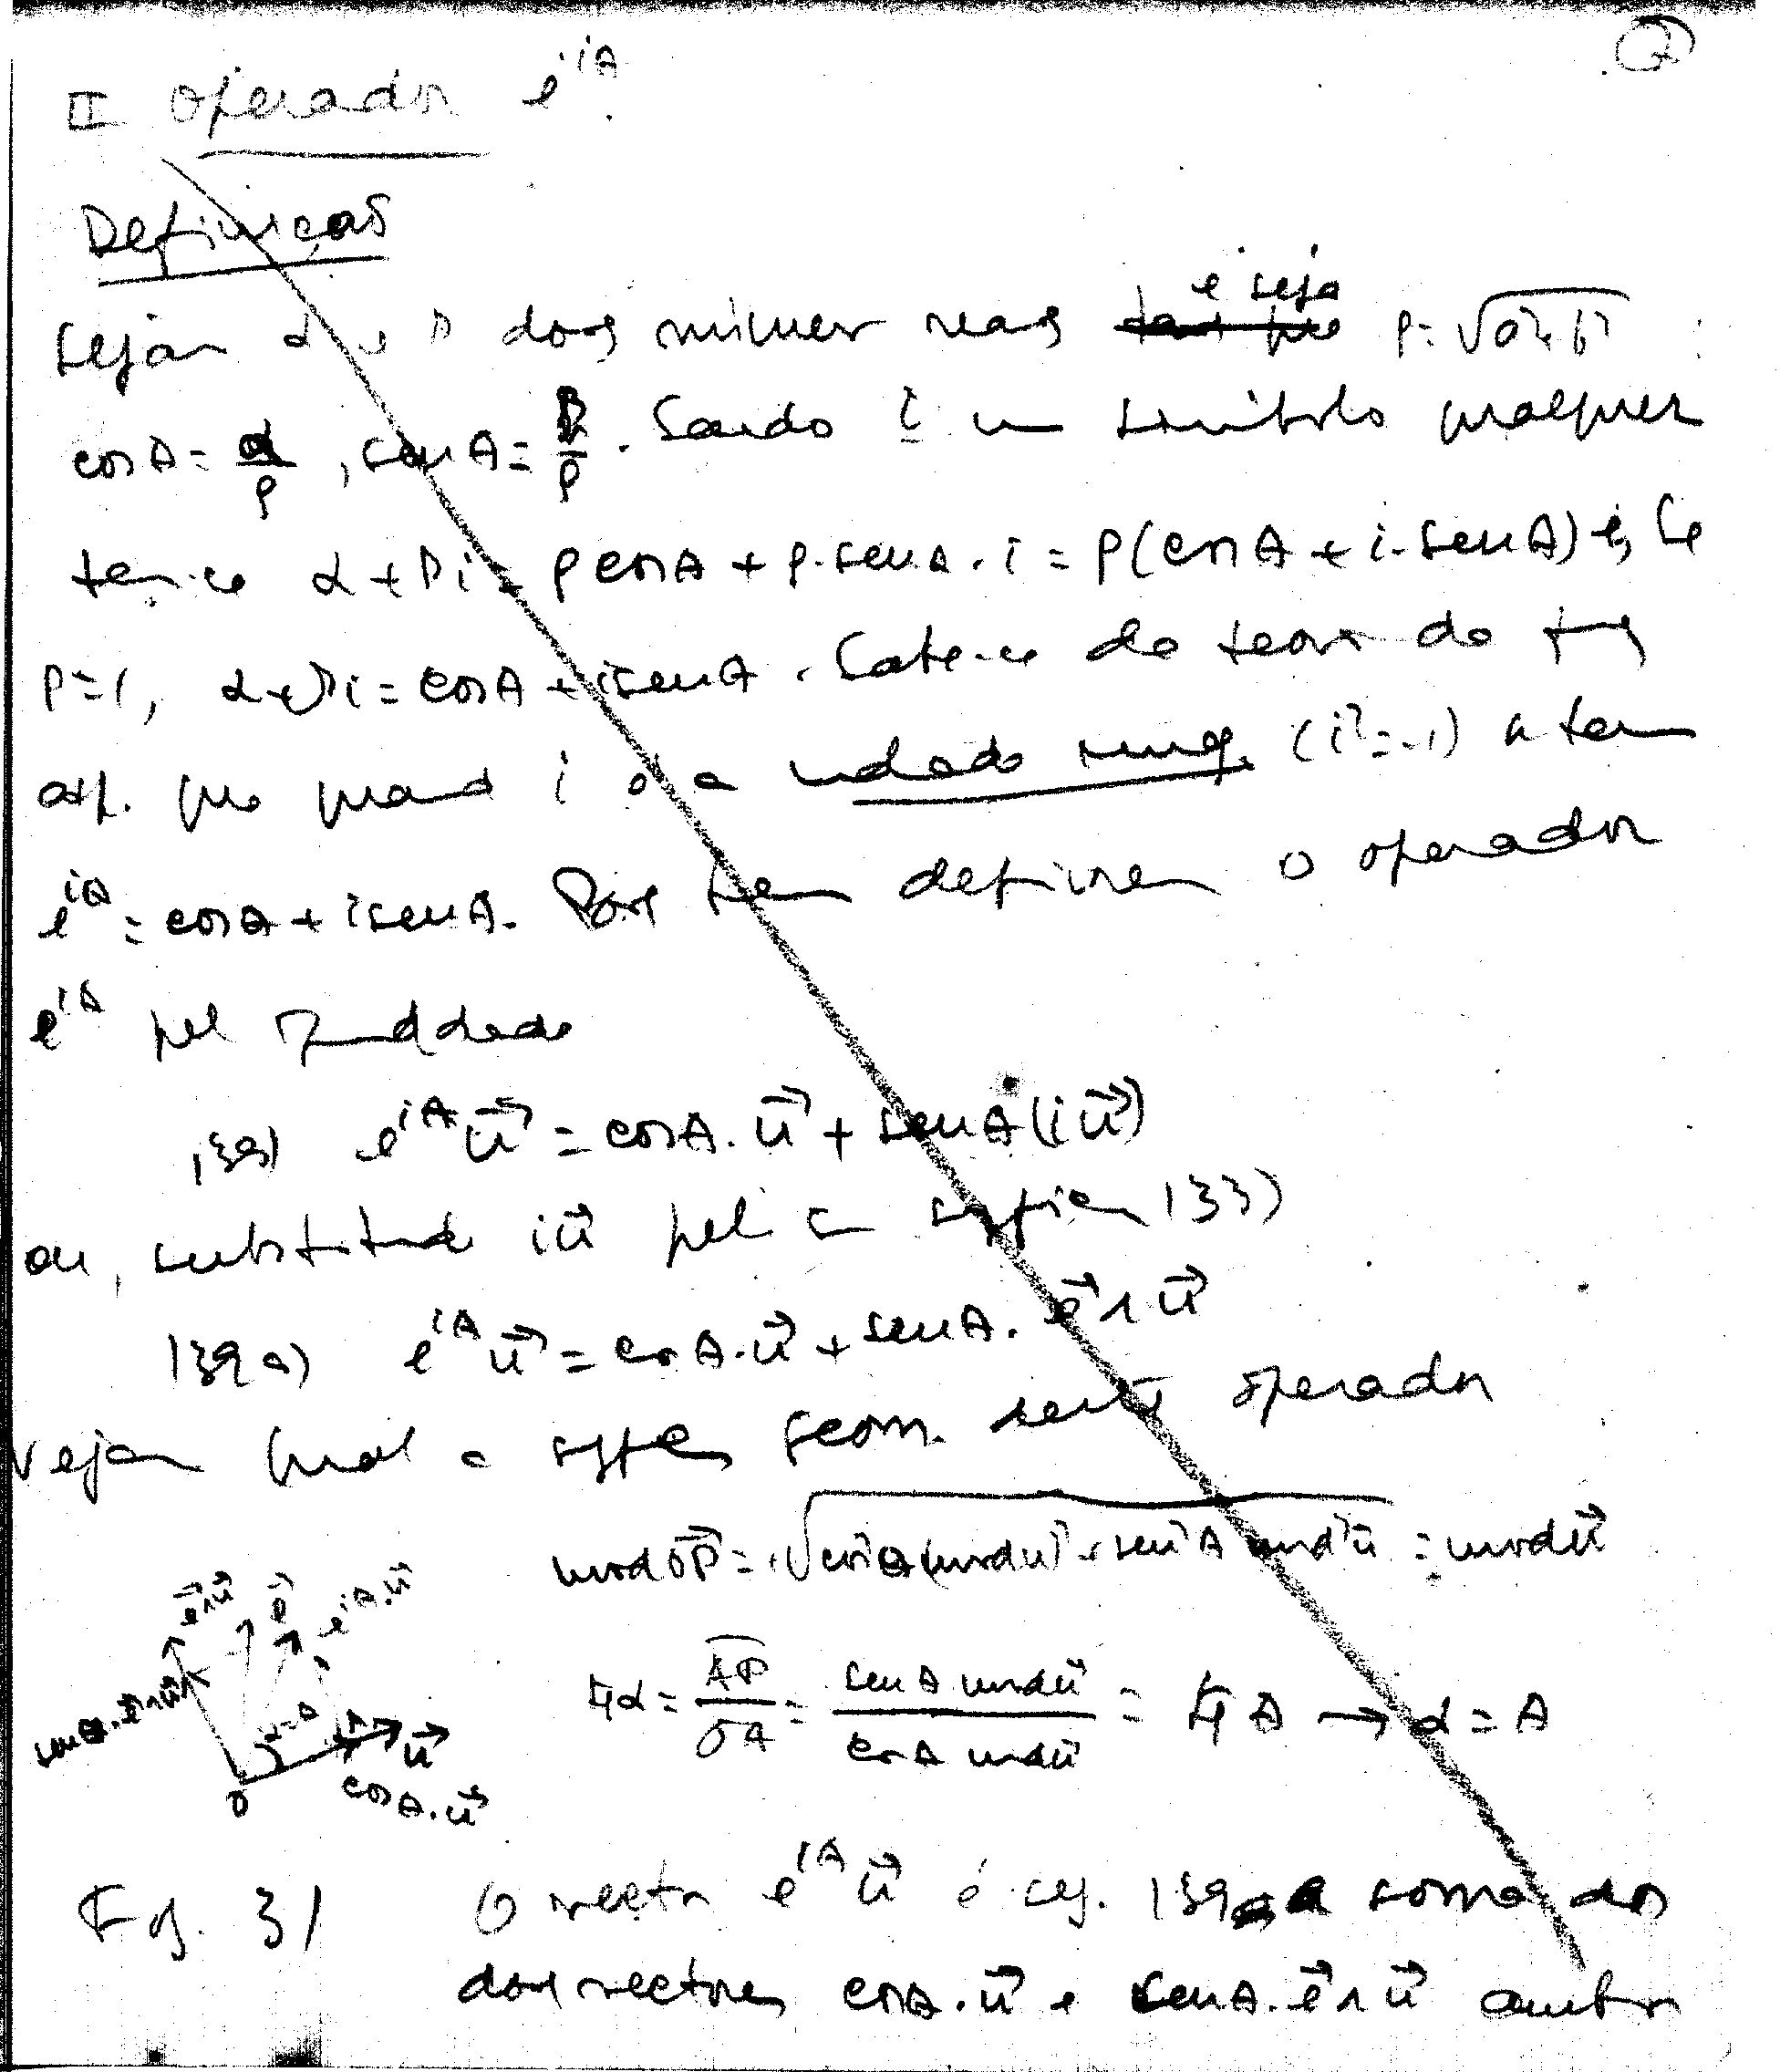 2
II Operador e^{iA}
Definição
Sejam α e β dois números reais e seja ρ = √α²+β²
cos A = α/ρ, sen A = β/ρ. Sendo i um símbolo qualquer
tem-se α + βi = ρ cos A + ρ.sen A.i = ρ(cos A + i.sen A) e, se
ρ=1, α+βi = cos A + i sen A. Sabe-se da teoria de
que quando i é a unidade imag. (i²=-1) a
e^{iA} = cos A + i sen A. Pois bem definirem o operador
e^{iA} pel
139) e^{iA} u⃗ = cos A. u⃗ + sen A (i u⃗)
ou, substituind iu⃗ pel 133)
139a) e^{iA} u⃗ = cos A.u⃗ + sen A. e⃗∧u⃗
Vejam qual a geom. operador
mod OP⃗ = √cos²A (mod u⃗)² + sen²A mod²u⃗ = mod u⃗
e⃗∧u⃗ e^{iA}.u⃗
tg α = AP/OA = sen A mod u⃗/cos A mod u⃗ = tg A → α = A
sen A.e⃗∧u⃗ α=A A u⃗
O cos A.u⃗
Fig. 31 O vector e^{iA} u⃗ é seg. 139a a soma dos
dois vectores cos A.u⃗ e sen A.e⃗∧u⃗ ambos